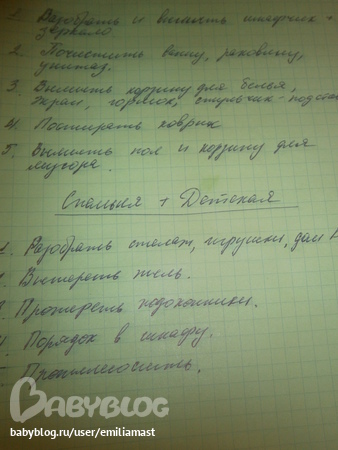 1. Разобрать и вымыть шкафчик +
зеркало
2. Почистить ванну, раковину,
унитаз.
3. Вымыть корзину для белья,
экран, горшок, стульчик-подста
4. Постирать коврик
5. Вымыть пол и корзину для
мусора.
Спальня + Детская
1. Разобрать стелаж, игрушки, дом
Вытереть пыль.
Протереть подоконники.
Порядок в шкафу.
Пропылесосить.
BABYBLOG
babyblog.ru/user/emiliamast